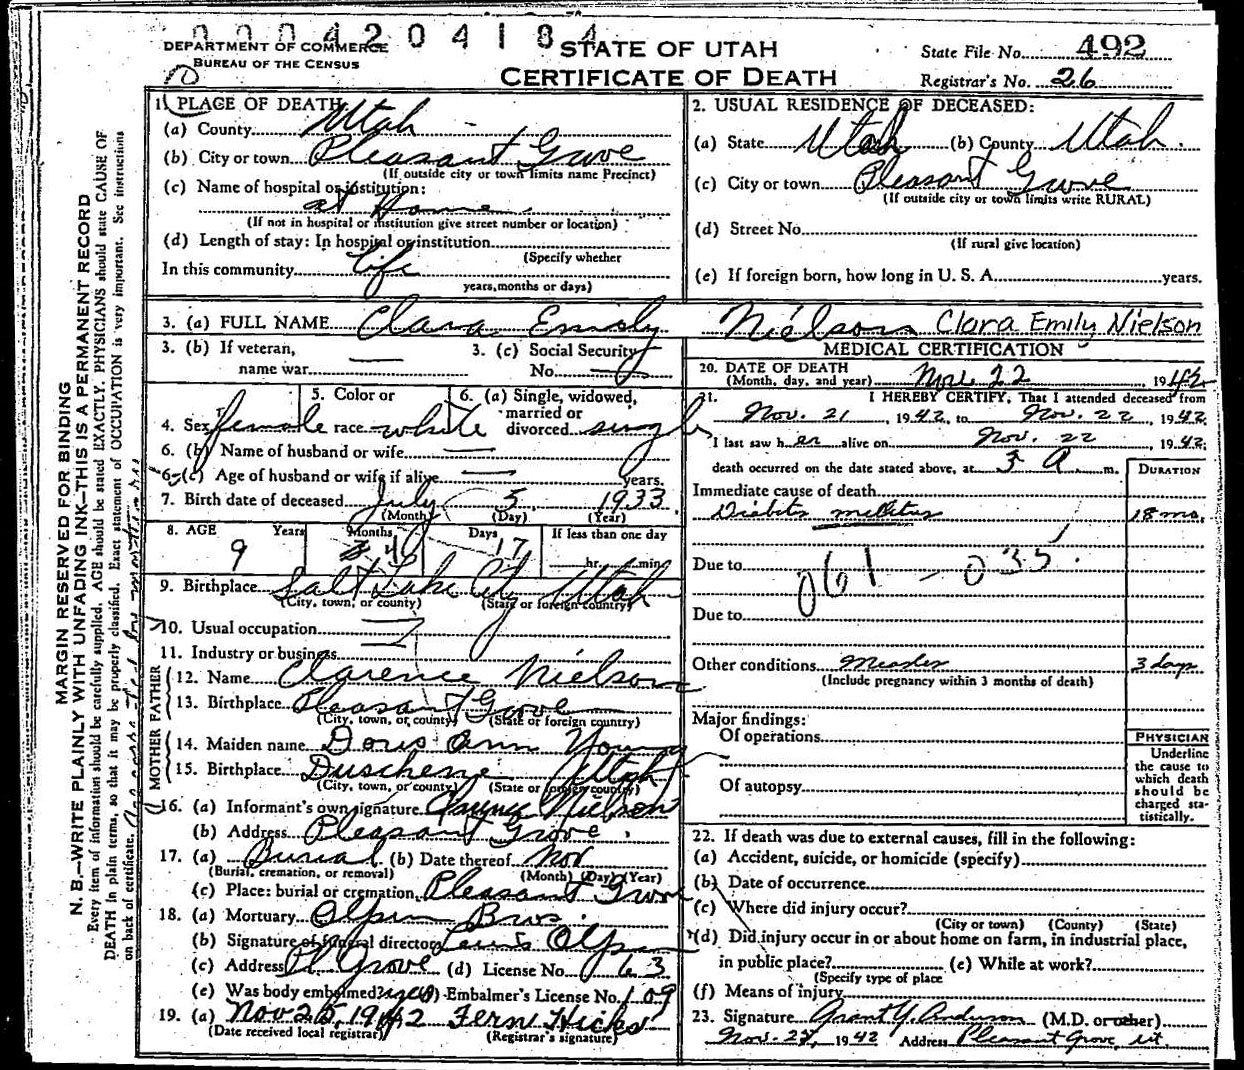 0004204184
DEPARTMENT OF COMMERCE
BUREAU OF THE CENSUS
STATE OF UTAH
CERTIFICATE OF DEATH
State File No. 492
Registrar's No. 26
MARGIN RESERVED FOR BINDING
N. B.—WRITE PLAINLY WITH UNFADING INK—THIS IS A PERMANENT RECORD
Every item of information should be carefully supplied. AGE should be stated EXACTLY. PHYSICIANS should state CAUSE OF
DEATH in plain terms, so that it may be properly classified. Exact statement of OCCUPATION is very important. See instructions
on back of certificate.
1. PLACE OF DEATH
(a) County Utah
(b) City or town Pleasant Grove
(If outside city or town limits name Precinct)
(c) Name of hospital or institution:
at Home
(If not in hospital or institution give street number or location)
(d) Length of stay: In hospital or institution
(Specify whether
In this community life
years, months or days)
2. USUAL RESIDENCE OF DECEASED:
(a) State Utah (b) County Utah.
(c) City or town Pleasant Grove
(If outside city or town limits write RURAL)
(d) Street No.
(If rural give location)
(e) If foreign born, how long in U. S. A. years.
3. (a) FULL NAME Clara Emily Nielson Clara Emily Nielson
3. (b) If veteran,
name war
3. (c) Social Security
No.
4. Sex female
5. Color or
race white
6. (a) Single, widowed,
married or
divorced single
6. (b) Name of husband or wife
6. (c) Age of husband or wife if alive years.
7. Birth date of deceased July 5 1933
(Month) (Day) (Year)
8. AGE Years Months Days If less than one day
9 4 17 hr. min.
9. Birthplace Salt Lake City Utah
(City, town, or county) (State or foreign country)
10. Usual occupation
11. Industry or business
FATHER
12. Name Clarence Nielson
13. Birthplace Pleasant Grove
(City, town, or county) (State or foreign country)
MOTHER
14. Maiden name Doris Ann Young
15. Birthplace Duschene Utah
(City, town, or county) (State or foreign country)
16. (a) Informant's own signature Clarence Nielson
(b) Address Pleasant Grove.
17. (a) Burial (b) Date thereof Nov
(Burial, cremation, or removal) (Month) (Day) (Year)
(c) Place: burial or cremation Pleasant Grove
18. (a) Mortuary Olpin Bros.
(b) Signature of funeral director Olpin
(c) Address Pl Grove (d) License No. 163
(e) Was body embalmed? yes Embalmer's License No. 109
19. (a) Nov 25, 1942 Fern Hicks
(Date received local registrar) (Registrar's signature)
MEDICAL CERTIFICATION
20. DATE OF DEATH
(Month, day, and year) Nov. 22, 1942
21. I HEREBY CERTIFY, That I attended deceased from
Nov. 21, 1942, to Nov. 22, 1942.
I last saw her alive on Nov. 22 1942;
death occurred on the date stated above, at 3 A m.
DURATION
Immediate cause of death
Diabetes mellitus 18 mo.
Due to 061 - 035
Due to
Other conditions Measles 3 days
(Include pregnancy within 3 months of death)
Major findings:
Of operations
Of autopsy
PHYSICIAN
Underline
the cause to
which death
should be
charged sta-
tistically.
22. If death was due to external causes, fill in the following:
(a) Accident, suicide, or homicide (specify)
(b) Date of occurrence
(c) Where did injury occur?
(City or town) (County) (State)
(d) Did injury occur in or about home on farm, in industrial place,
in public place? (e) While at work?
(Specify type of place
(f) Means of injury
23. Signature Grant Y. Anderson (M.D. or other)
Nov. 27, 1942 Address Pleasant Grove, Ut.